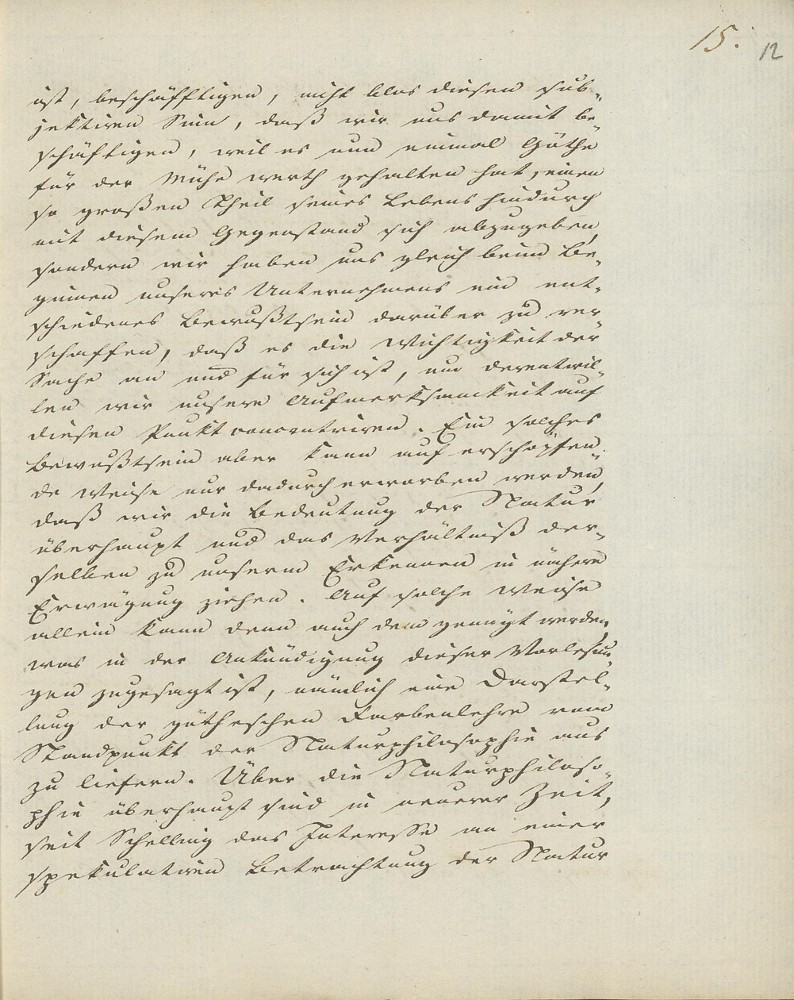 15.
12
ist, beschäfftigen, nicht blos diesen sub-
jektiven Sinn, daß wir uns damit be-
schäftigen, weil es nun einmal Göthe
für der Mühe werth gehalten hat, einen
so großen Theil seines Lebens hindurch
mit diesem Gegenstand sich abzugeben,
sondern wir haben uns gleich beim Be-
ginnen unseres Unternehmens ein ent-
schiedenes Bewußtsein darüber zu ver-
schaffen, daß es die Wichtigkeit der
Sache an und für sich ist, um derentwil-
len wir unsere Aufmerksamkeit auf
diesen Punkt concentriren. Ein solches
Bewußtsein aber kann auf erschöpfen-
de Weise nur dadurch erworben werden,
daß wir die Bedeutung der Natur
überhaupt und das Verhältniß der-
selben zu unserm Erkennen in nähere
Erwägung ziehen. Auf solche Weise
allein kann denn auch dem genügt werden,
was in der Ankündigung dieser Vorlesun-
gen zugesagt ist, nämlich eine Darstel-
lung der götheschen Farbenlehre vom
Standpunkt der Naturphilosophie aus
zu liefern. Über die Naturphiloso-
phie überhaupt sind in neuerer Zeit,
seit Schelling das Interesse an einer
spekulativen Betrachtung der Natur